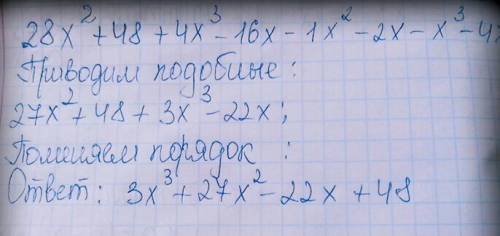 28x² + 48 + 4x³ - 16x - 1x² - 2x - x³ - 4
Приводим подобные :
27x² + 48 + 3x³ - 22x ;
Поменяем порядок :
Ответ : 3x³ + 27x² - 22x + 48